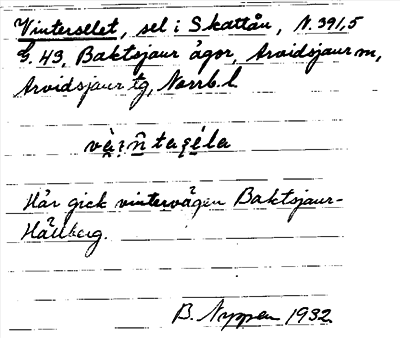 Vinterselet, sel i Skattån, N. 391,5
G. 43, Baktsjaur ägor, Arvidsjaur m,
Arvidsjaur tg, Norrb. l.
Här gick vintervägen Baktsjaur-
Hållberg.
B. Nyppen 1932